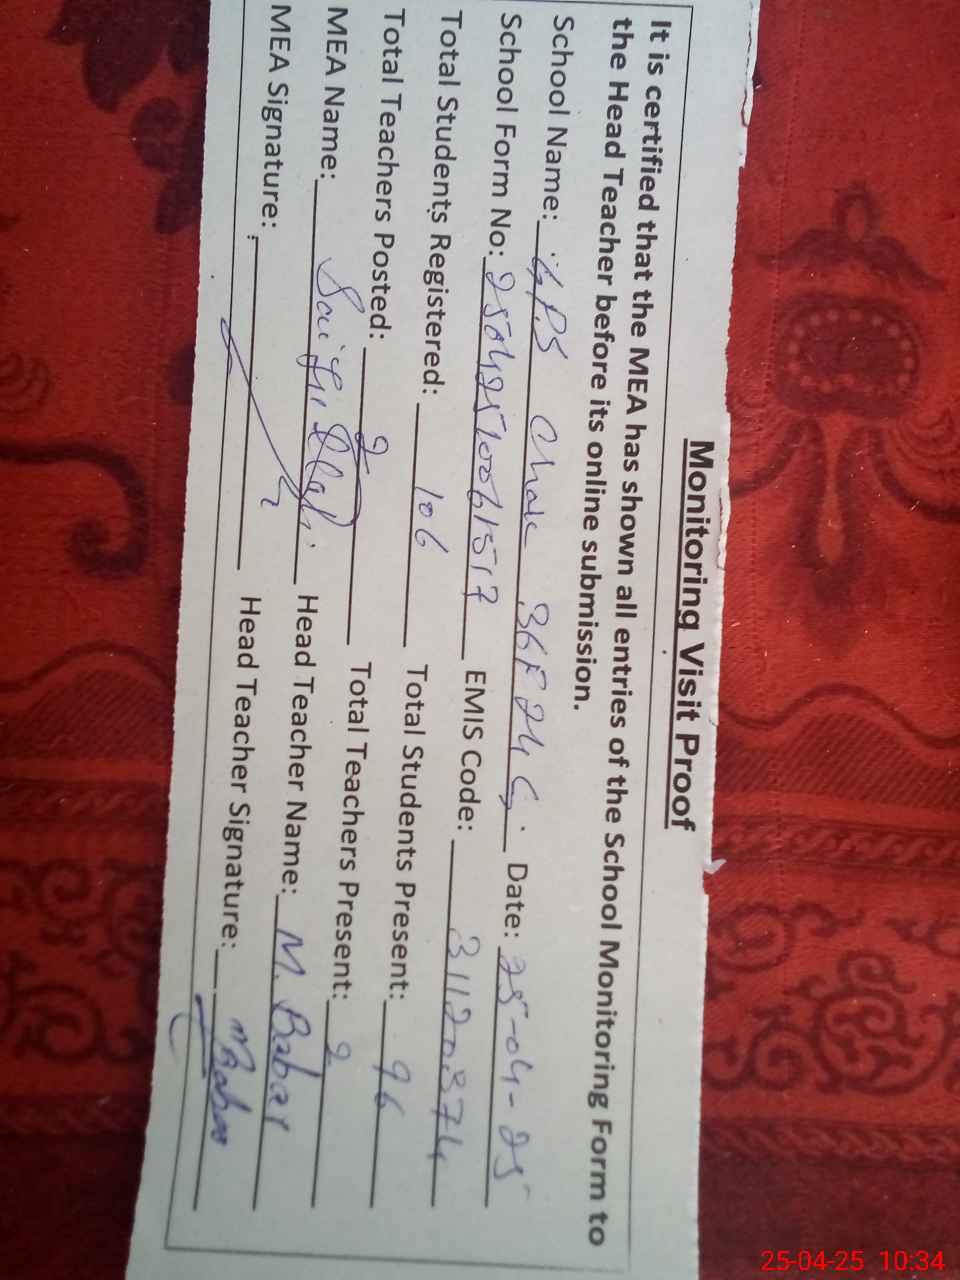 Monitoring Visit Proof
It is certified that the MEA has shown all entries of the School Monitoring Form to
the Head Teacher before its online submission.
School Name: G.P.S Chak 36F 24 G. Date: 25-04-25
School Form No: EMIS Code: 31120374
Total Students Registered: 106 Total Students Present: 96
Total Teachers Posted: 2 Total Teachers Present: 2
MEA Name: Head Teacher Name: M. Babar
MEA Signature: Head Teacher Signature: MBabar
25-04-25 10:34